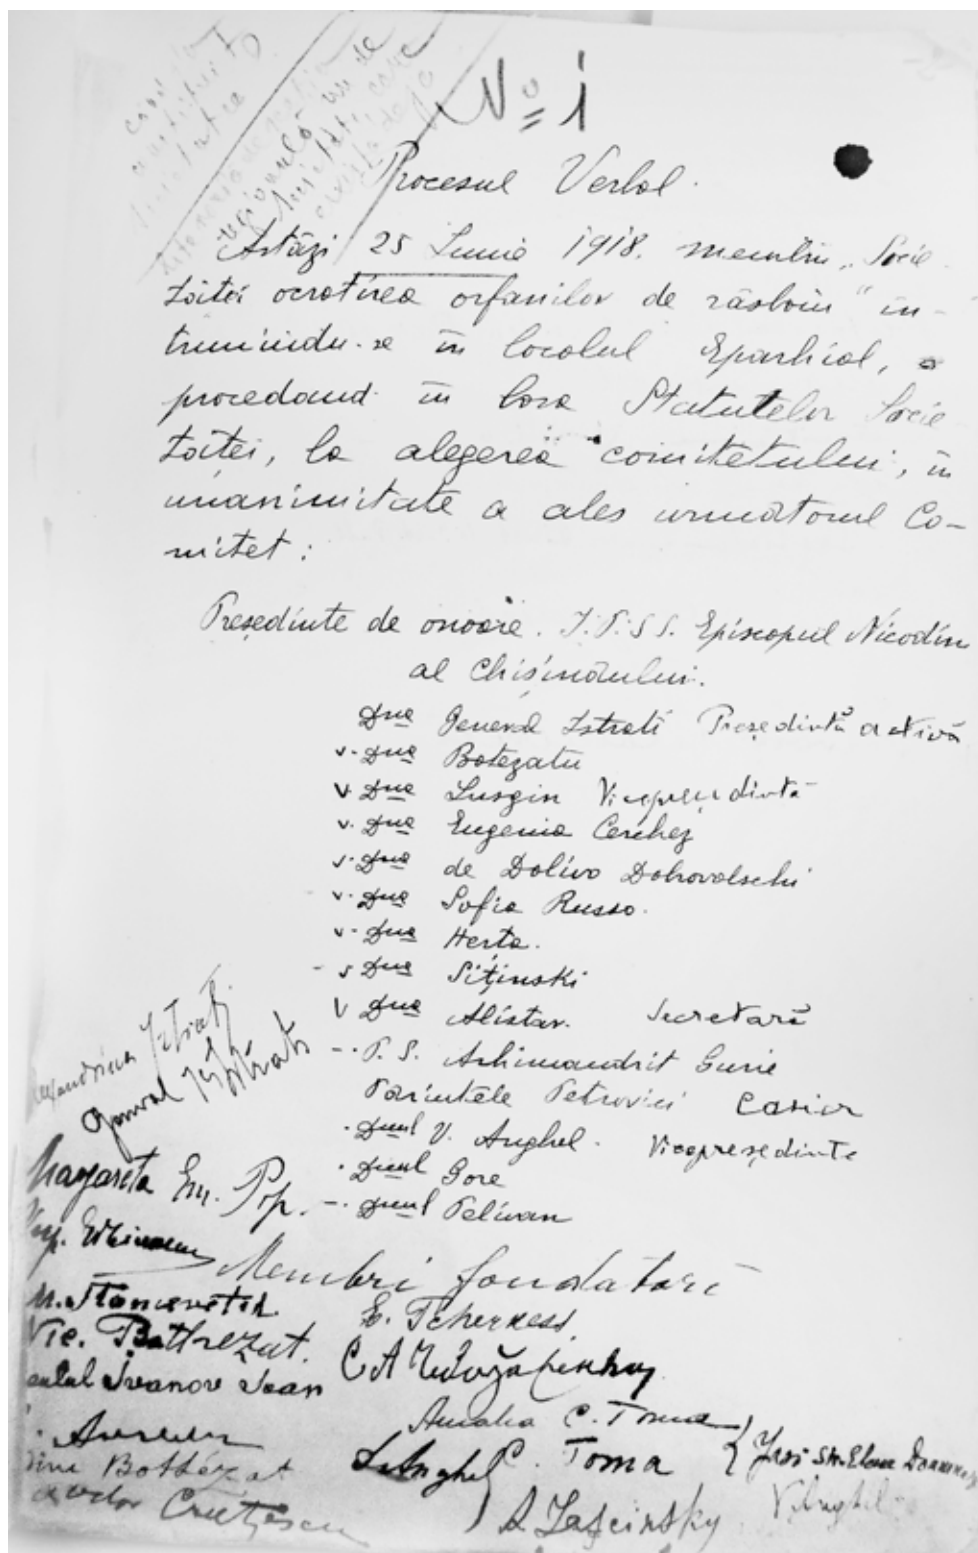 No 1
Procesul Verbal.
Astăzi 25 Iunie 1918. membrii „Socie
tăței ocrotirea orfanilor de răsboiu" în-
trunindu-se în localul Eparhial,
procedând în baza Statutelor Socie
tăței, la alegerea comitetului, în
unanimitate a ales următorul Co-
mitet:
Președinte de onoare. I.P.S.S. Episcopul Nicodim
al Chișinăului.
Dna General Istrati Președintă activă
v. Dna Botezatu
v. Dna Lusgin Vicepreședintă
v. Dna Eugenia Cerchez
v. Dna de Dolivo Dobrovolschi
v. Dna Sofia Russo.
v. Dna Herța.
v Dna Siținski
v Dna Alistar. Secretară
P. S. Arhimandrit Gurie
Părintele Petrovici Casier
Dnul V. Anghel. Vicepreședinte
Dnul Gore
Dnul Pelivan
General Istrati
Margareta Em. Pop.
Membri fondatori
E. Tcherkess
Vic. Botthezat.
Ivanov Ioan
C A
Amalia C. Toma
C. Toma Iași str. Elena Doamna
Anghel
Botthézat
V. Anghel